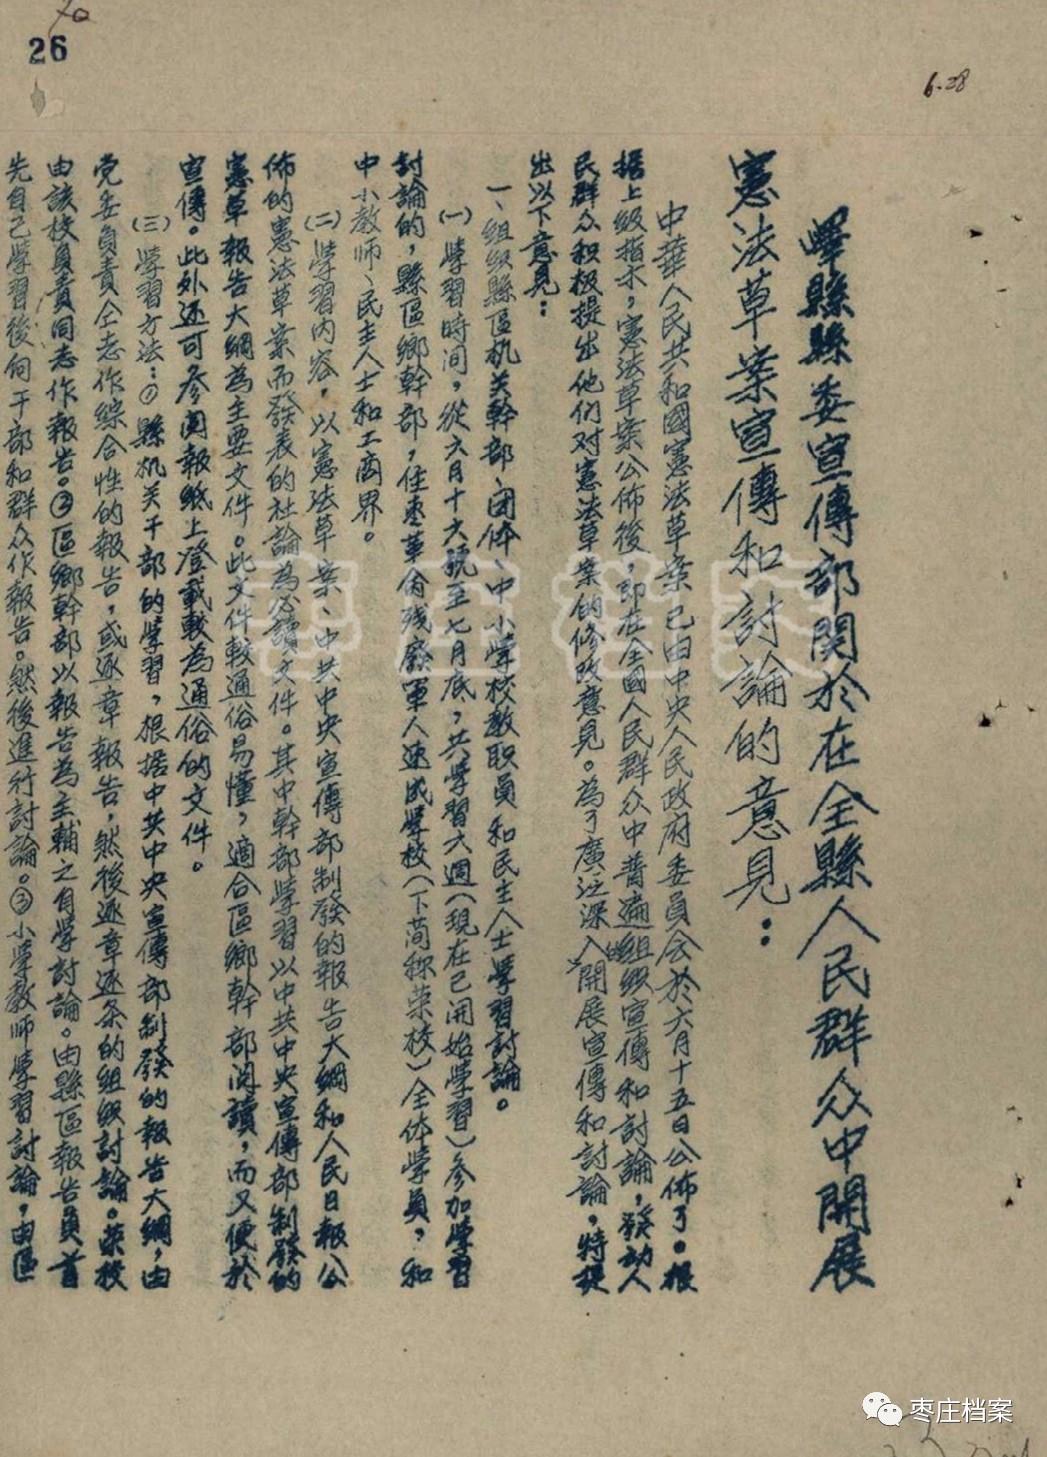 26
6.28
嶧縣縣委宣傳部関於在全縣人民群众中開展
憲法草案宣傳和討論的意見：
中華人民共和國憲法草案已由中央人民政府委員会於六月十五日公佈了。根
据上級指示，憲法草案公佈後，即在全國人民群众中普遍組织宣傳和討論，發动人
民群众积极提出他们对憲法草案的修改意見。為了廣泛深入開展宣傳和討論，特提
出以下意見：
一、組织縣區机关幹部、团体、中小学校教职員和民主人士学習討論。
㈠学習時间，從六月十六號至七月底，共学習六週（現在已開始学習）参加学習
討論的，縣區鄉幹部，住枣革命残廢軍人速成学校（下简称荣校）全体学員，和
中小教师、民主人士和工商界。
㈡学習内容，以憲法草案、中共中央宣傳部制發的報告大綱和人民日報公
佈的憲法草案而發表的社論為必讀文件。其中幹部学習以中共中央宣傳部制發的
憲草報告大綱為主要文件。此文件較通俗易懂，適合區鄉幹部阅讀，而又便於
宣傳。此外还可参阅報紙上登載較為通俗的文件。
㈢学習方法：①縣机关干部的学習，根据中共中央宣傳部制發的報告大綱，由
党委負責仝志作綜合性的報告，或逐章報告，然後逐章逐条的組织討論。荣校
由該校負責同志作報告。②區鄉幹部以報告為主，輔之自学討論。由縣區報告員首
先自己学習後向干部和群众作報告。然後進行討論。③小学教师学習討論，由區
枣庄档案